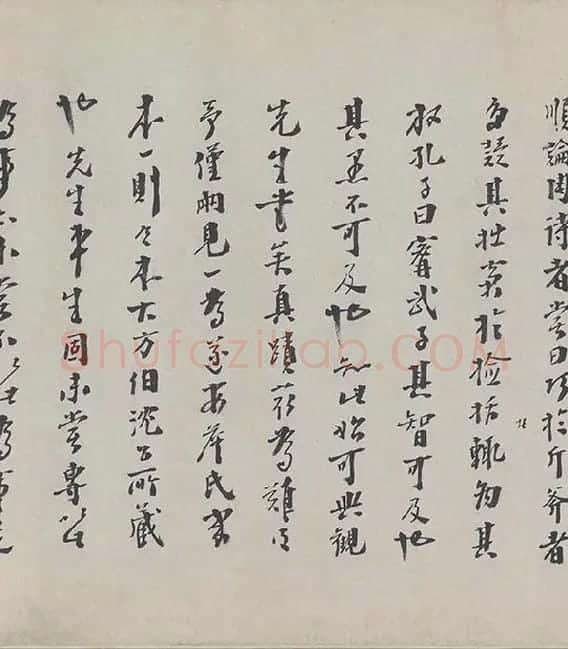 順論周詩者嘗曰巧於斤斧者
多疑其拙窘於檢括輒為其
放孔子曰甯武子其智可及也
其愚不可及也知此始可與觀
先生書矣真蹟為難得
予僅兩見一為氏家
本一則今本大方伯沈公所藏
也先生平生固未嘗專以
Shufaziliao.COM